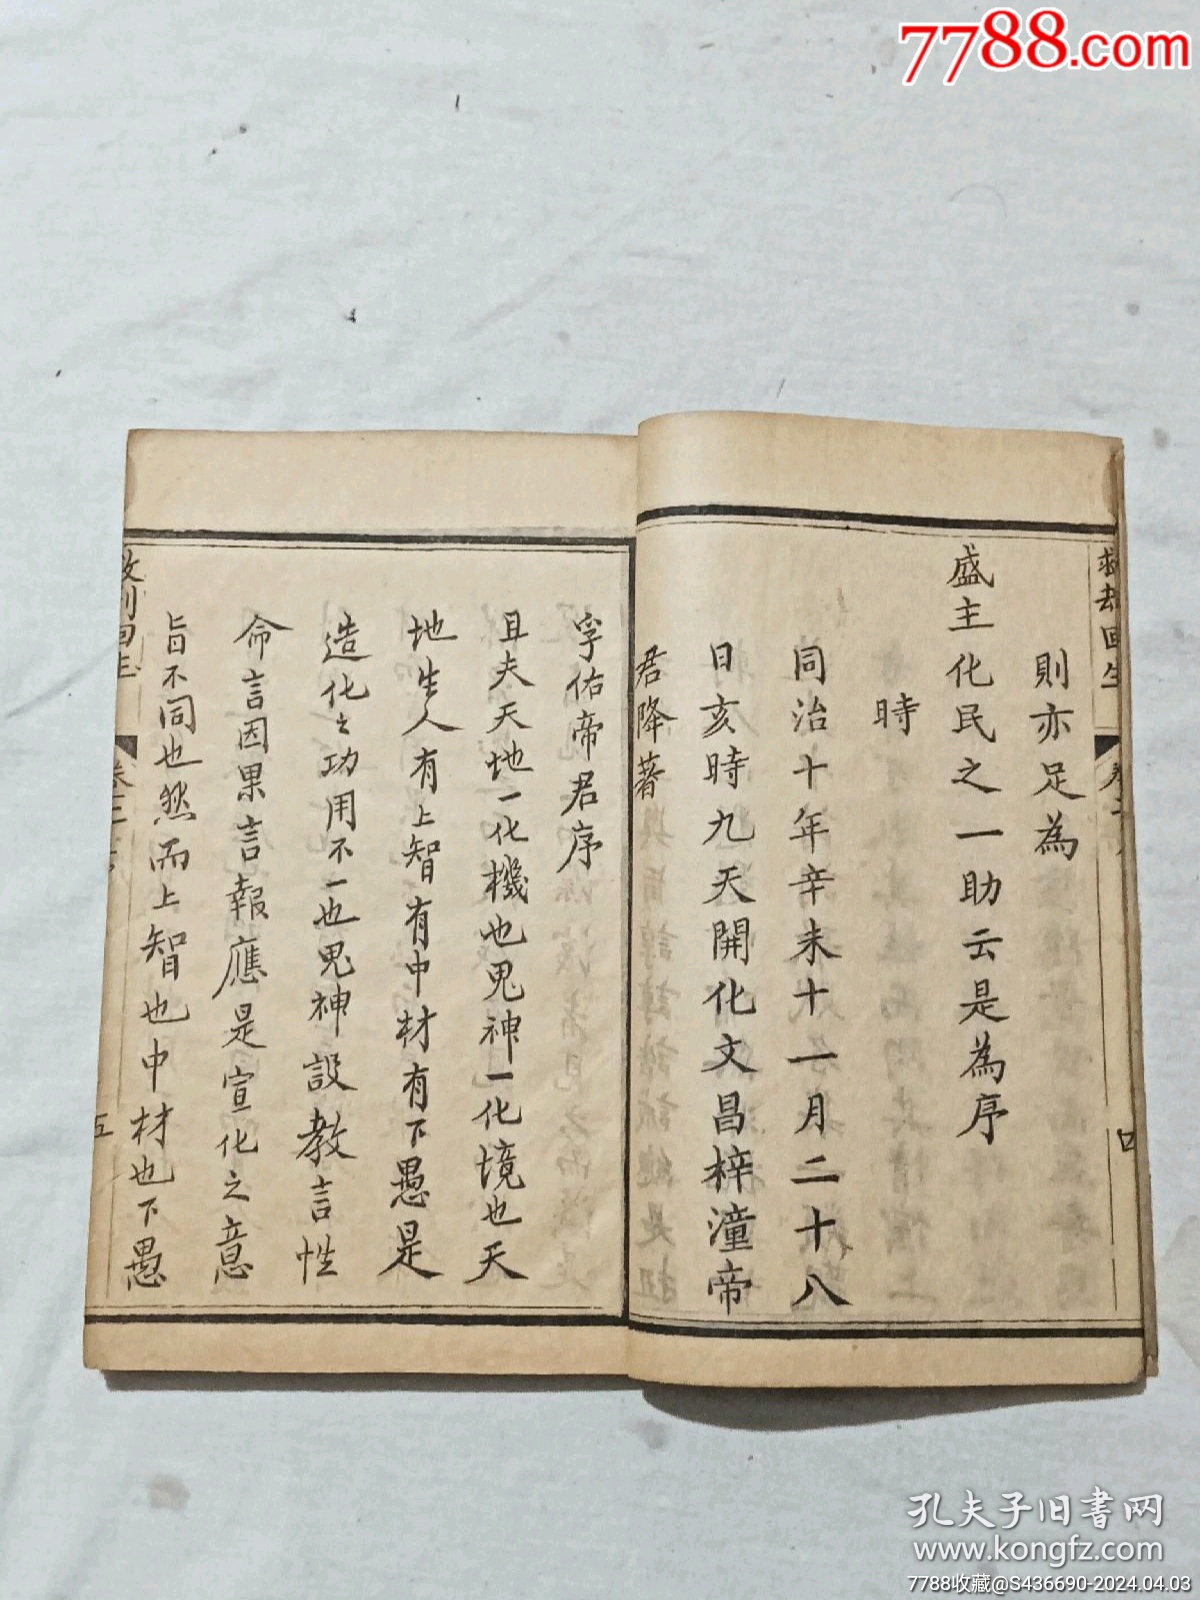 7788.com
救劫回生
四
則亦足為
盛主化民之一助云是為序
時
同治十年辛未十一月二十八
日亥時九天開化文昌梓潼帝
君降著
孚佑帝君序
且夫天地一化機也鬼神一化境也天
地生人有上智有中材有下愚是
造化之功用不一也鬼神設教言性
命言因果言報應是宣化之意
旨不同也然而上智也中材也下愚
救劫回生
五
孔夫子旧书网
www.kongfz.com
7788收藏@S436690-2024.04.03